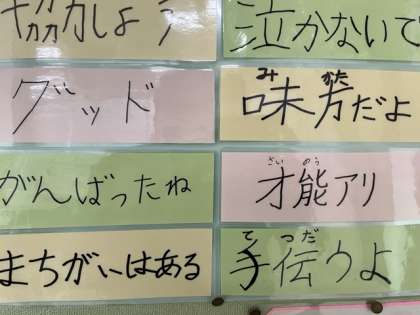 協力しよう
泣かないで
グッド
味方だよ
がんばったね
才能アリ
まちがいはある
手伝うよ